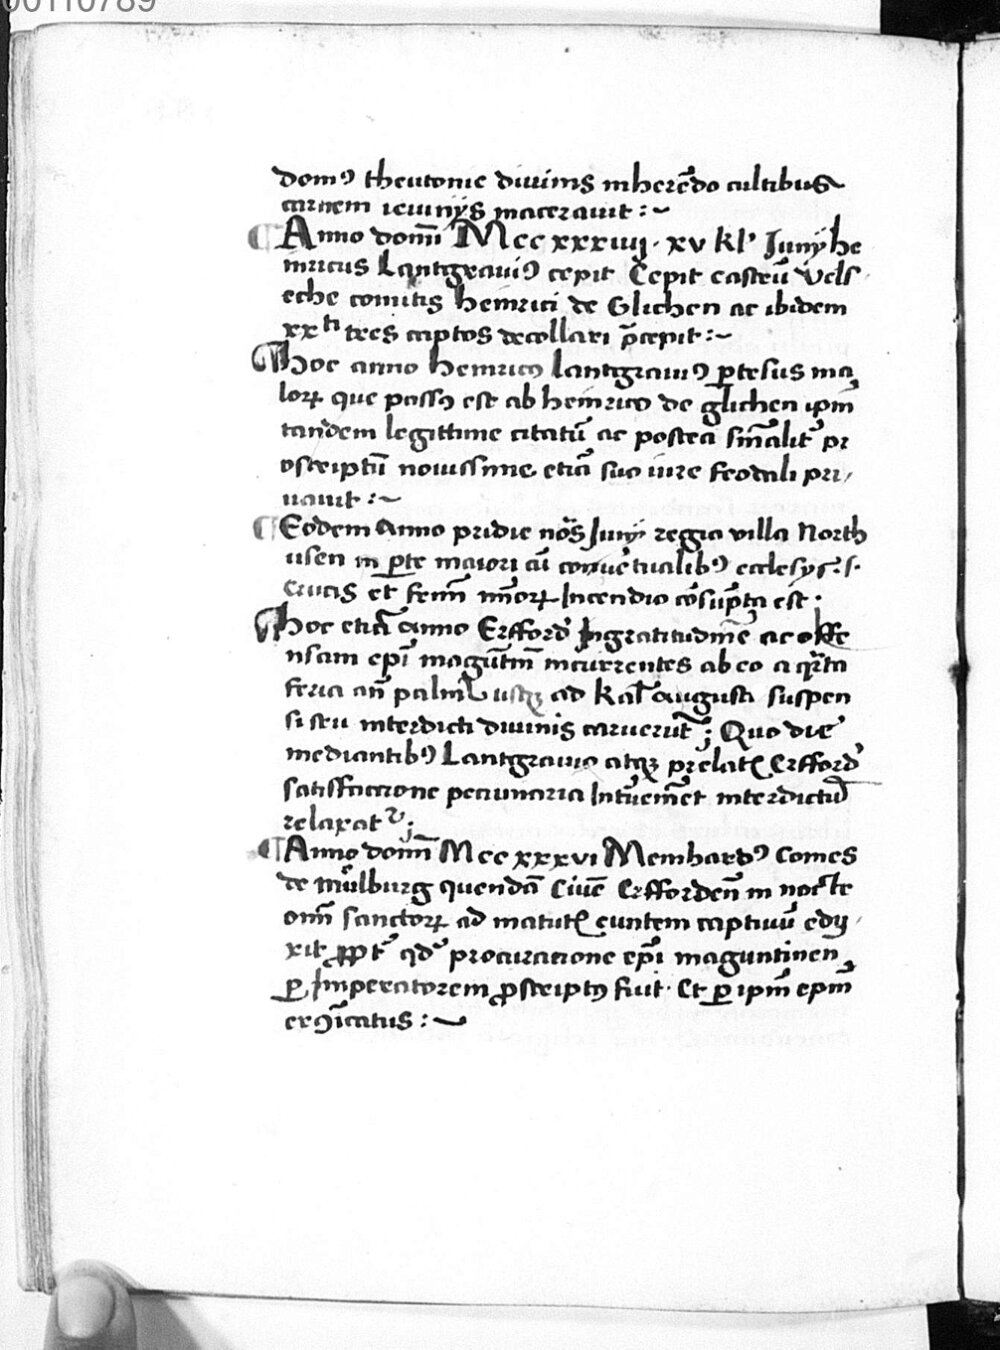 00110789
domꝰ theutonie diuinis inherēdo cultibus
carnem ieiunijs macerauit :~
¶ Anno domī Mccxxxiiij · xv kl' Junij he
inricus Lantgrauiꝰ cepit Cepit castrū Vels
eche comitis heinrici de Glichen ac ibidem
xxti tres captos decollari p̄cepit :~
¶ hoc anno heinricꝰ lantgrauiꝰ ꝑtesus ma
lorꝝ que passꝰ est ab heinrico de glichen ipm̄
tandem legittime citatū ac postea sin̄alit' pr
oscriptū nouissime etiā suo iure feodali pri,
uauit :~
¶ Eodem anno pridie no̅s Junij regia villa North
usen in ꝑte maiori cū conuētualibꝰ ecclesijs · s ·
Crucis et femī mōrꝝ Incendio cōsūpta est ·
¶ hoc etiā anno Erfford' Ingratitudinē ac offe
nsam ep̄i magūtin̄ incurrentes ab eo a qͣrta
feria an̄ palm usqꝫ ad kal' augusti suspen
si seu interdicti diuinis caruerūt ; Quo die
mediantibꝰ Lantgrauio atqꝫ prelatꝭ Erfford'
satisfaccione pecuniaria Intūemēt interdictū
relaxat᷑ ;
¶ Anno domī Mccxxxvi Meinhardꝰ Comes
de mūlburg quendā Ciuē Erffordeñ in nocte
om̄ sanctorꝝ ad matutꝭ euntem captiuū edu
xit ꝓpt' qd' procuracione ep̄i maguntinen
ꝑ Imperatorem ꝓscriptꝰ fuit · Et ꝑ ipm̄ epm̄
exꝯīcatus :~